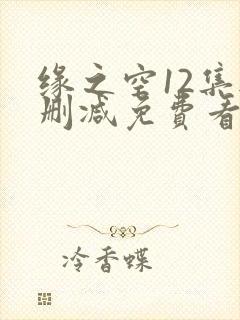 缘之空12集
删减免費看
冷香蝶